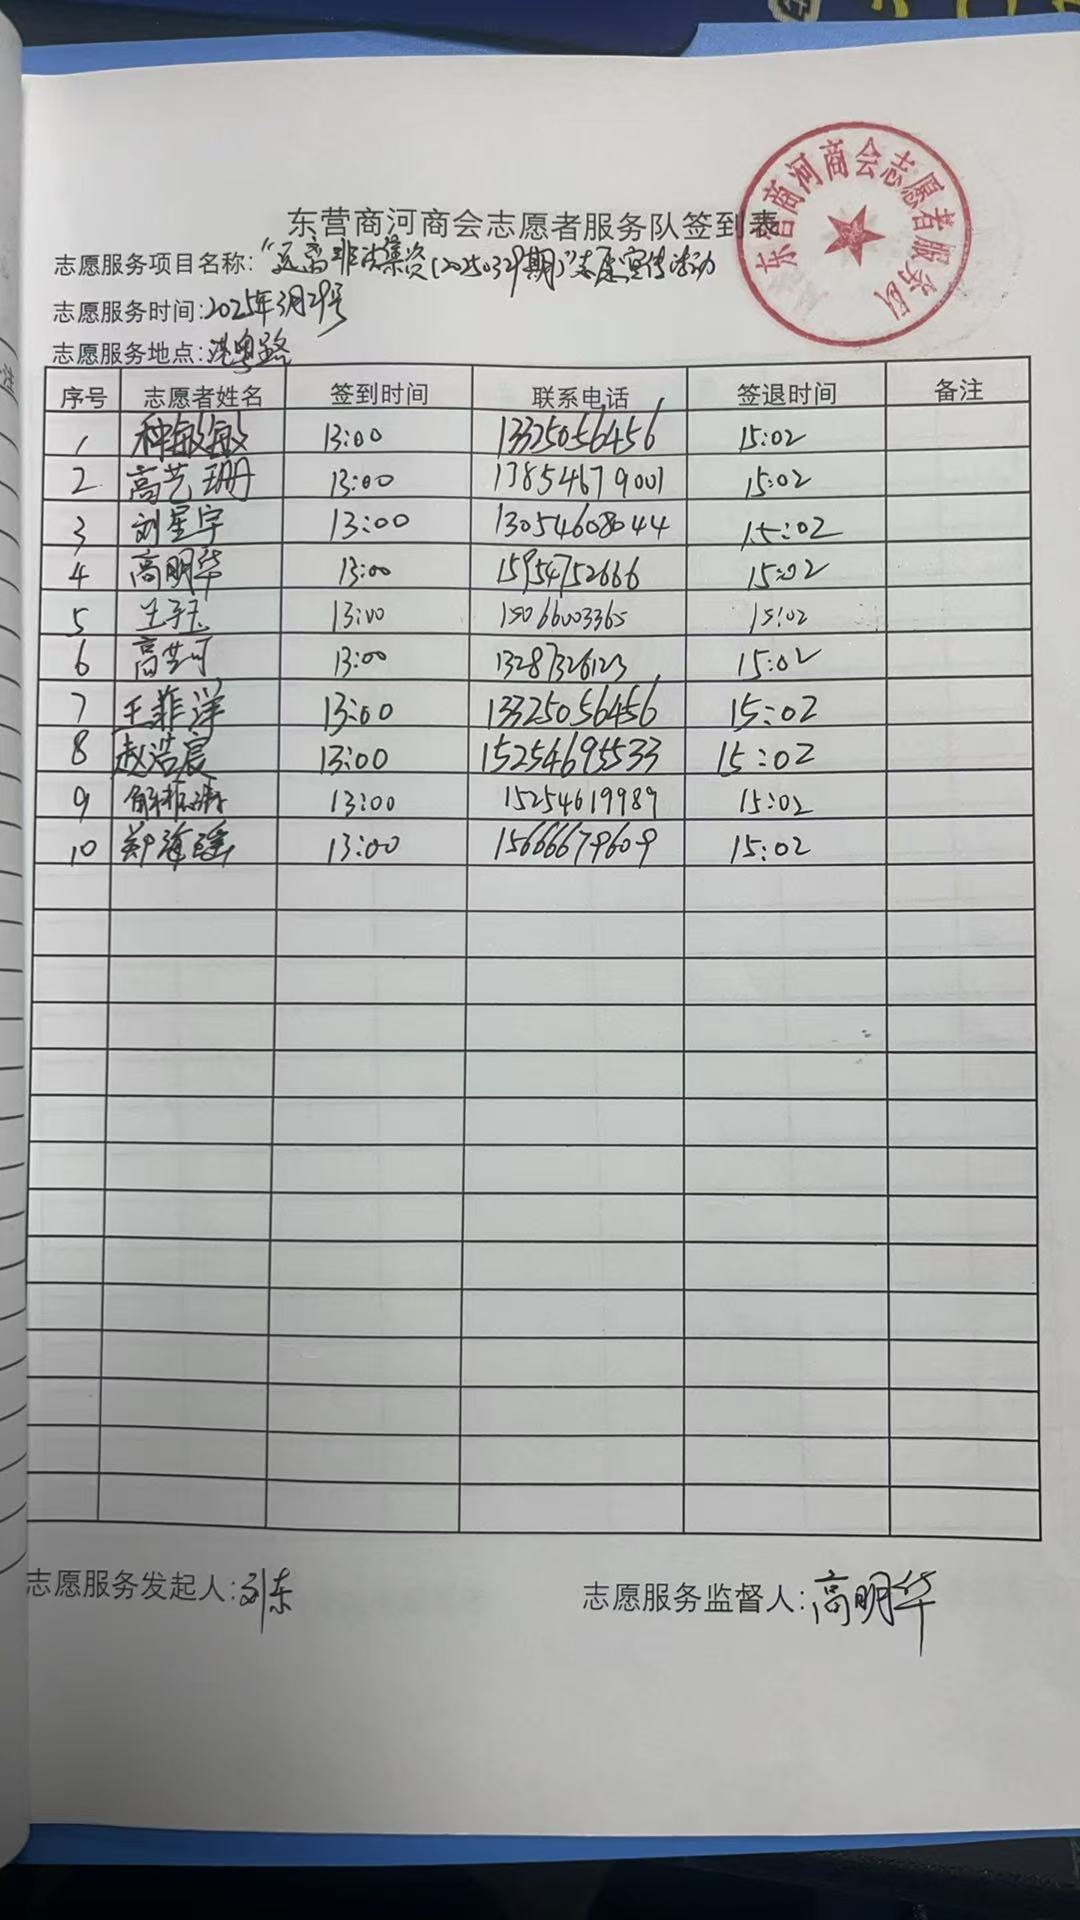 东营商河商会志愿者服务队签到表
东营商河商会志愿者服务队
志愿服务项目名称:“远离非法集资(20250329期)”志愿宣传活动
志愿服务时间:2025年3月29号
志愿服务地点:港粤路
序号 志愿者姓名 签到时间 联系电话 签退时间 备注
1 种敏敏 13:00 13325056456 15:02
2 高艺珊 13:00 13854679001 15:02
3 刘星宇 13:00 13054608044 15:02
4 高明华 13:00 15954752666 15:02
5 王子玉 13:00 15066003365 15:02
6 高艺可 13:00 13287326123 15:02
7 王菲洋 13:00 13325056456 15:02
8 赵浩宸 13:00 15254695533 15:02
9 解 13:00 15254619989 15:02
10 郑海瑶 13:00 15666679609 15:02
志愿服务发起人:刘东 志愿服务监督人:高明华